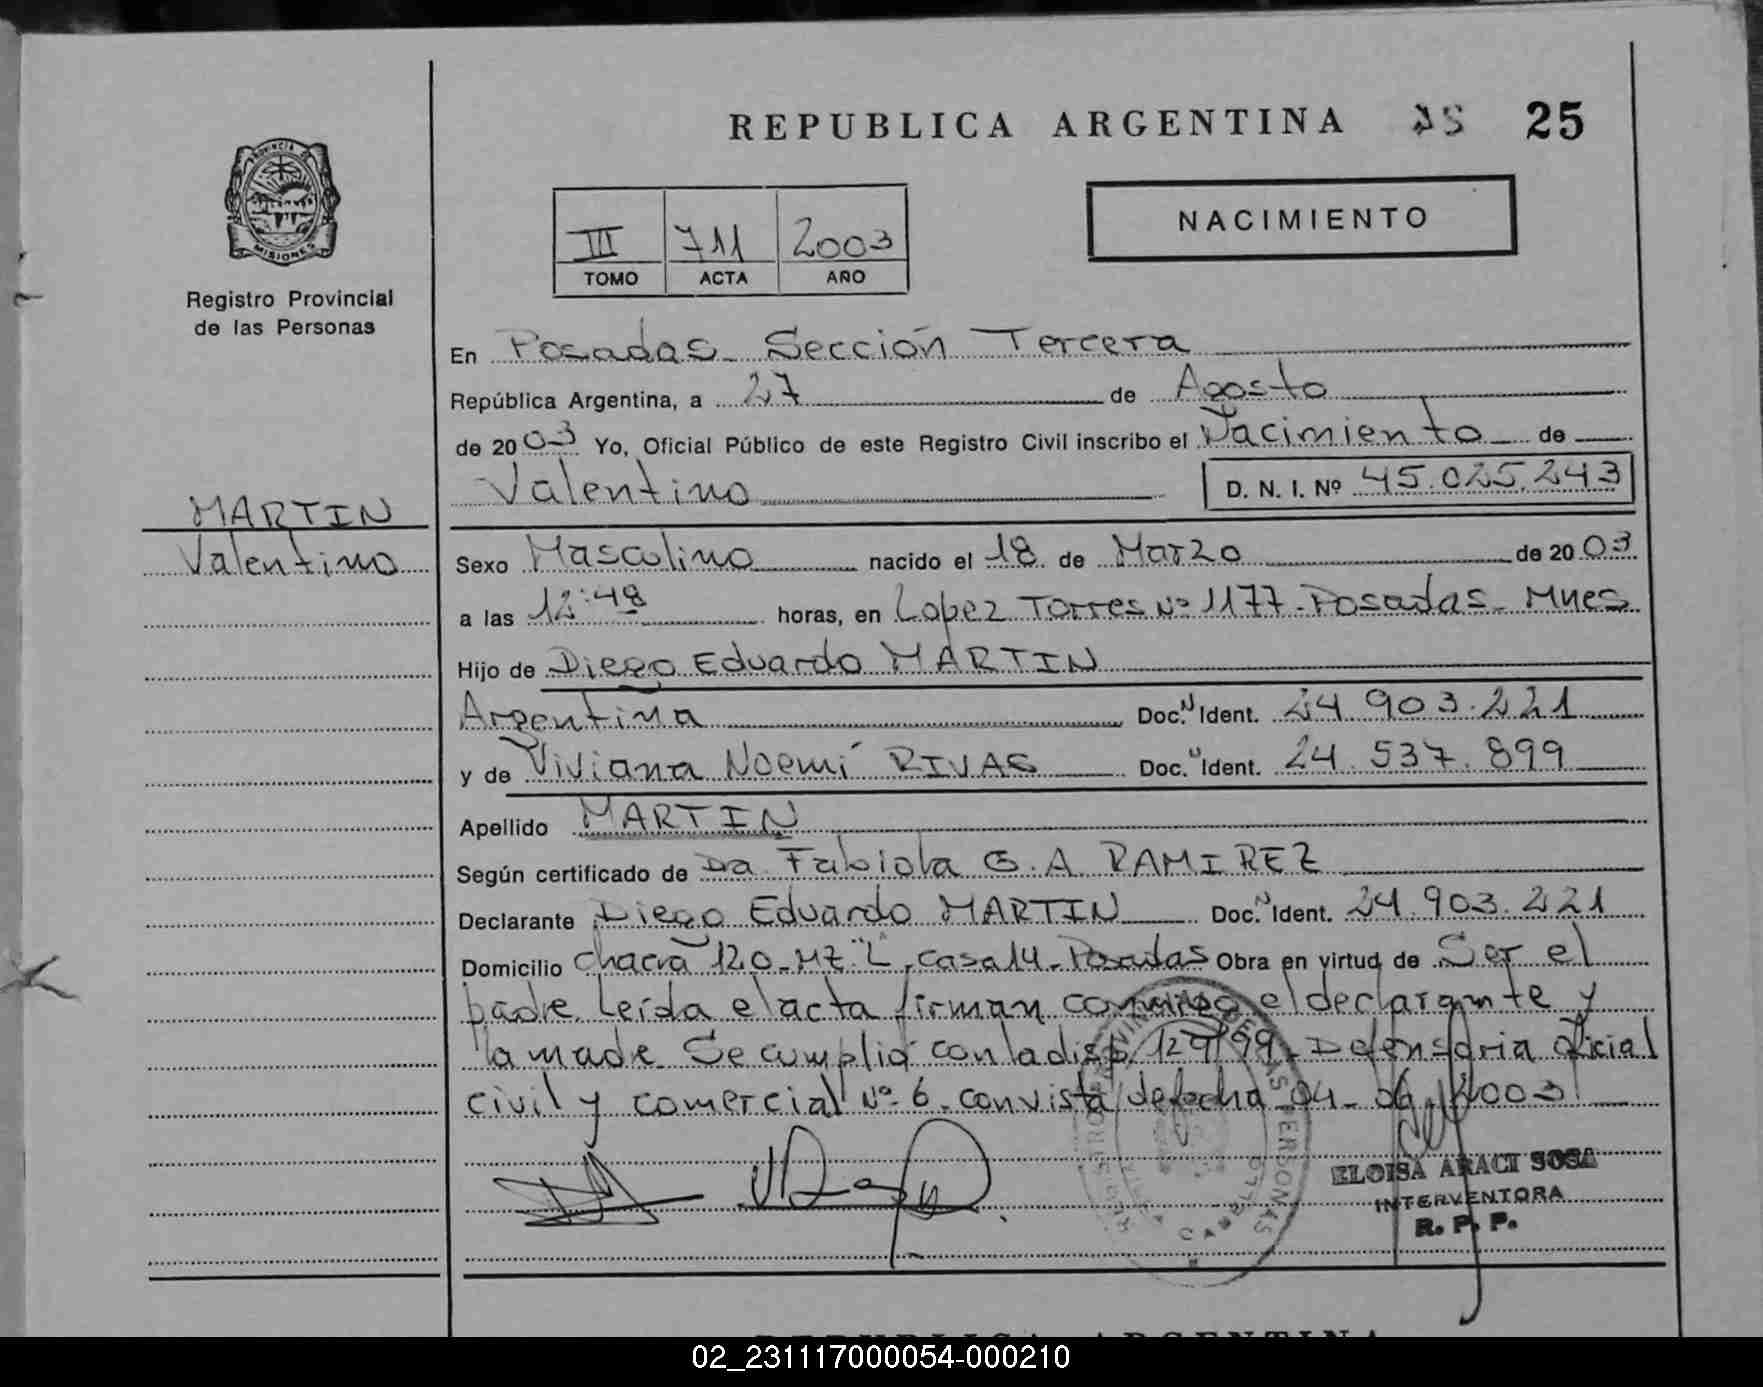 REPUBLICA ARGENTINA 25 25
PROVINCIA DE
MISIONES
Registro Provincial
de las Personas
NACIMIENTO
III 711 2003
TOMO ACTA AÑO
En Posadas - Sección Tercera
República Argentina, a 27 de Agosto
de 2003 Yo, Oficial Público de este Registro Civil inscribo el Nacimiento de
Valentino D. N. I. Nº 45.025.243
MARTIN
Valentino
Sexo Masculino nacido el 18 de Marzo de 2003
a las 12:48 horas, en Lopez Torres Nº 1177 - Posadas - Mnes
Hijo de Diego Eduardo MARTIN
Argentina Doc. N Ident. 24.903.221
y de Viviana Noemí RIVAS Doc. Ident. 24.537.899
Apellido MARTIN
Según certificado de Dra Fabiola G. A RAMIREZ
Declarante Diego Eduardo MARTIN Doc. N Ident. 24.903.221
Domicilio Chacra 120 - Mz "L", casa 14 - Posadas Obra en virtud de Ser el
padre. Leída el acta firman conmigo el declarante y
la madre. Se cumplió con la disp. 129/99 - Defensoria Oficial
civil y comercial Nº 6 - con vista de fecha 04 - 06 - 2003
ELOISA ARACI SOSA
INTERVENTORA
R. P. P.
REPUBLICA ARGENTINA
02_231117000054-000210